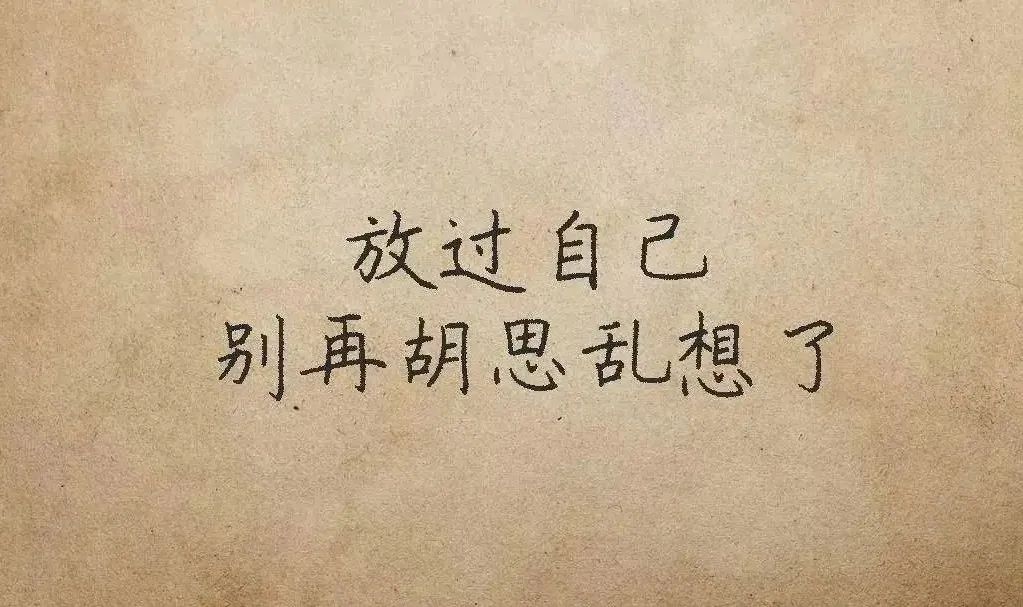 放过自己
别再胡思乱想了